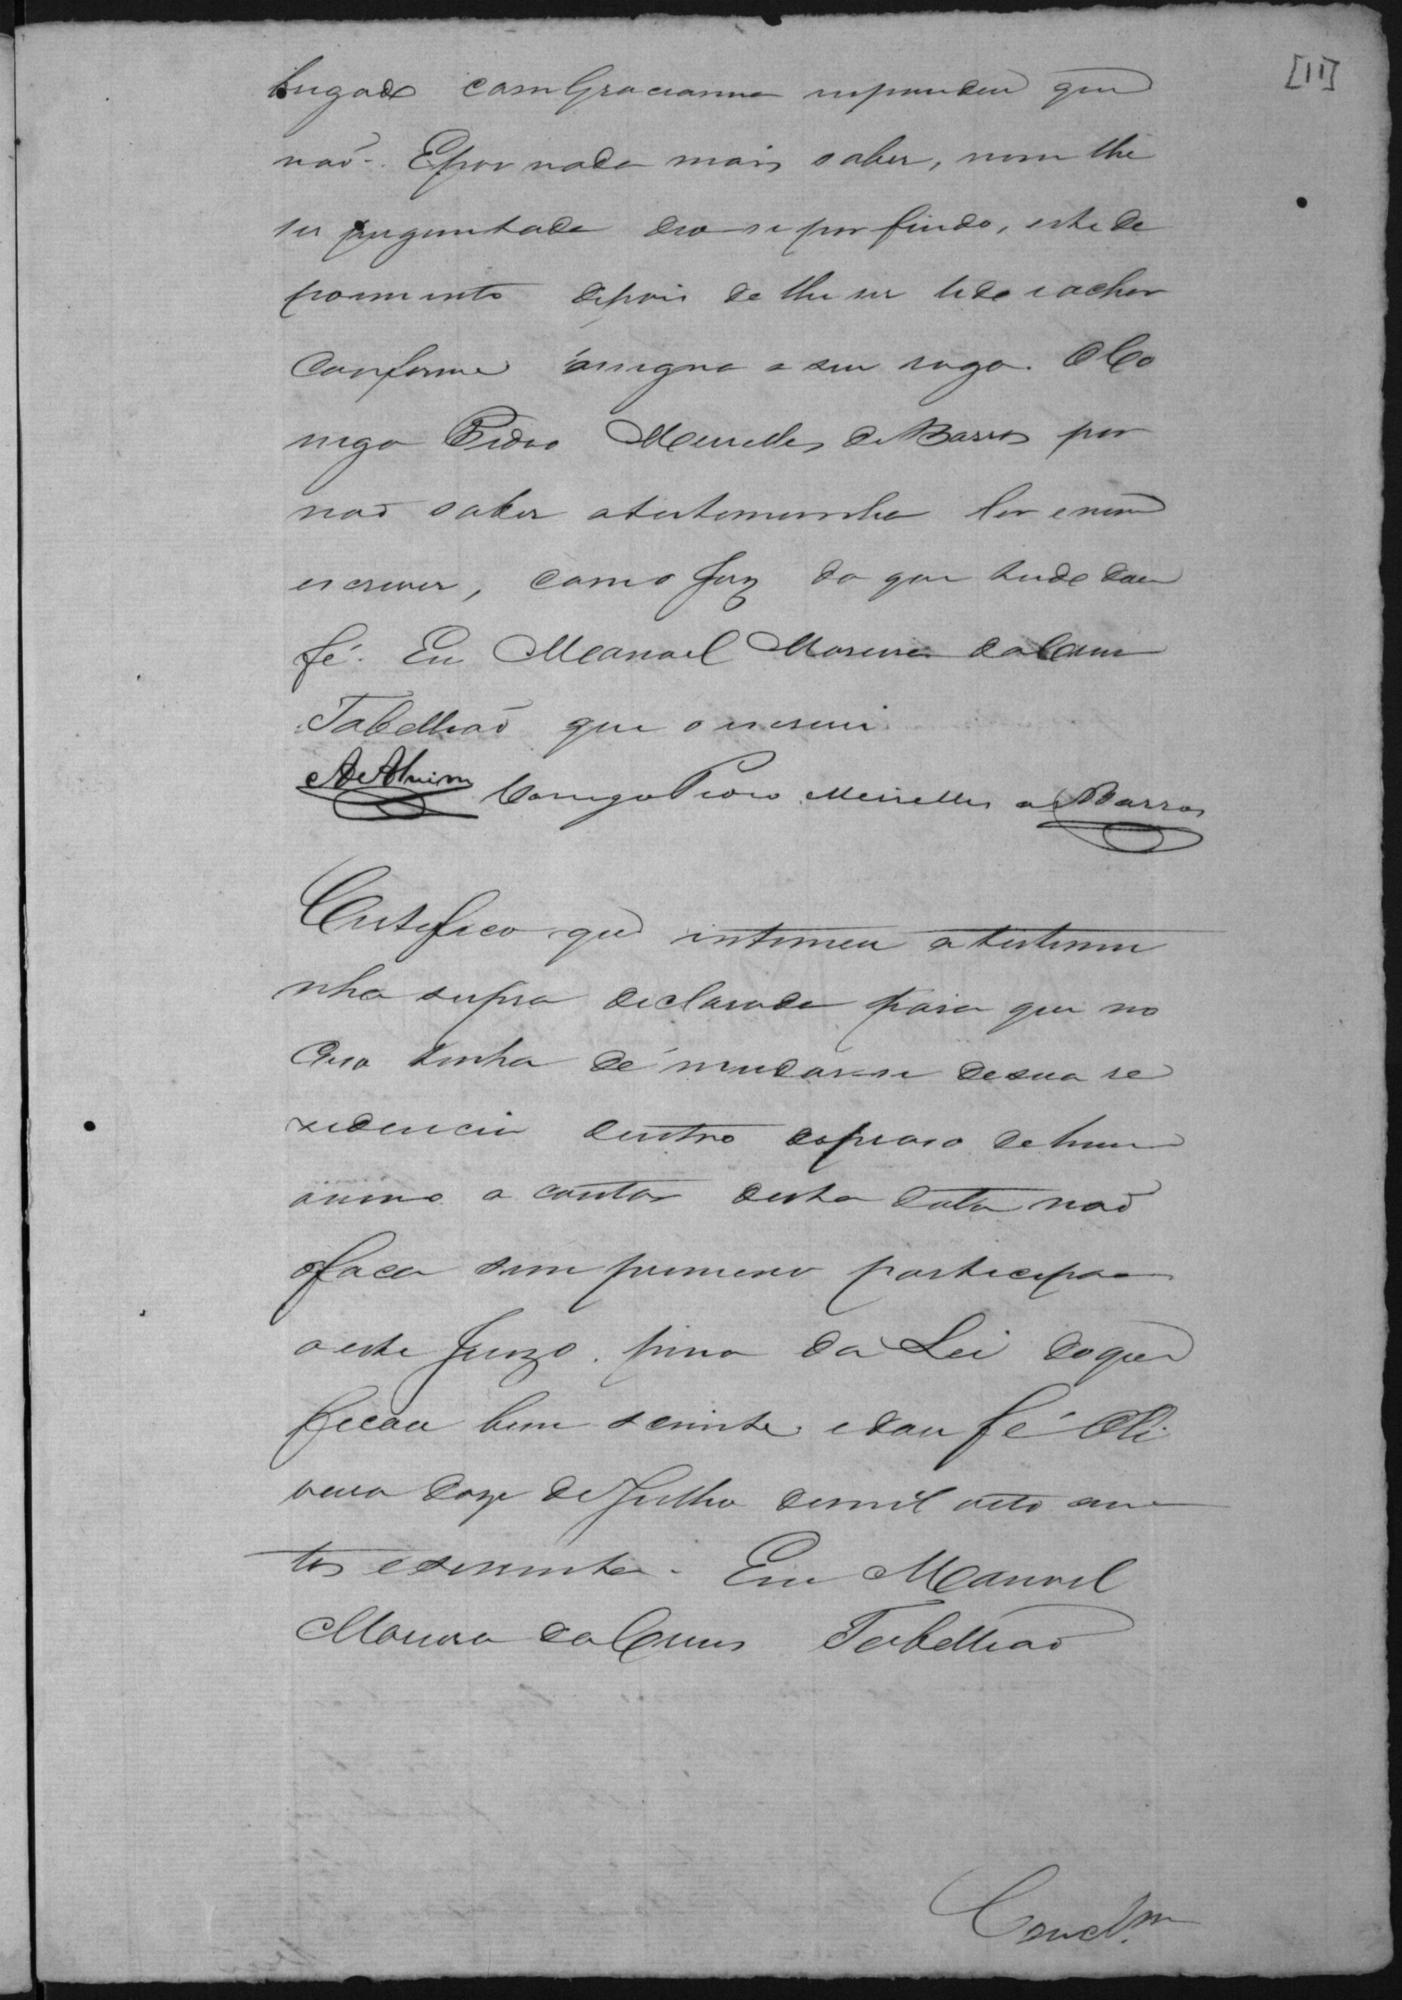 [11]
brigado com Gracianna respondeu que
naõ. E por nada mais saber, nem lhe
ser perguntado deo-se por findo, este de
poimento depois de lhe ser lido e achar
conforme assigna a seu rogo. O Co
nego Pedro Meirelles de Barros por
naõ saber a testemunha ler e nem
escrever, com o Juiz do que tudo dou
fé. Eu Manoel Moreira da Cruz
Tabelliaõ que o escrevi.
A d'Alvim Conego Pedro Meirelles de Barros
Certifico que intimei a testemu
nha supra declarada para que no
caso tenha de mudar-se de sua re
zidencia dentro do praso de hum
anno a contar desta data naõ
o faça sem primeiro participar
a este Juizo. pena da Lei do que
ficou bem sciente e dou fé Oli
veira doze de Julho de mil oito cen
tos e secenta. Eu Manoel
Moreira da Cruz Tabelliaõ